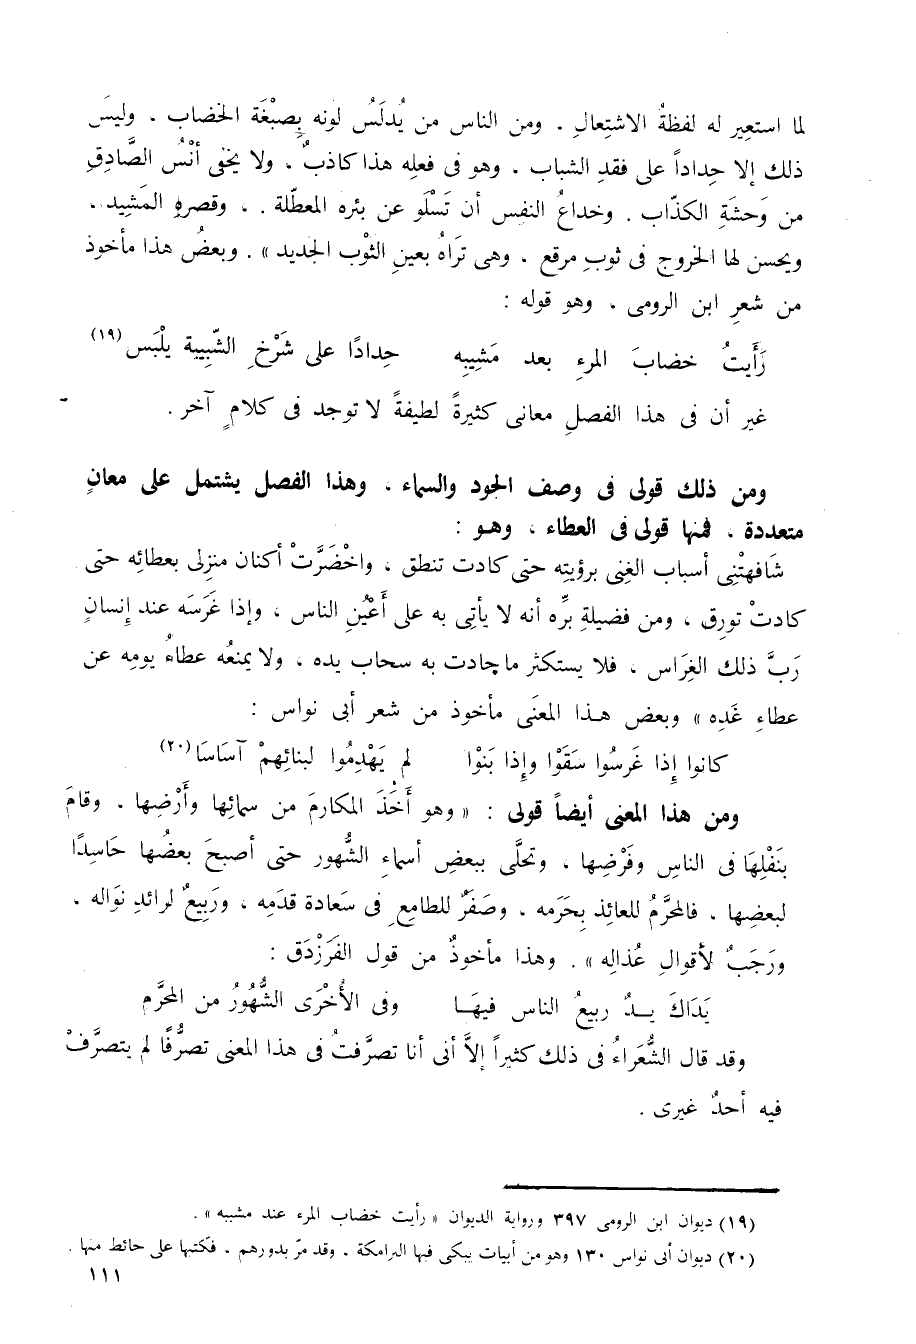 لما استعير له لفظةُ الاشتعالِ . ومن الناس من يُدلَسُ لونه بِصبْغَة الخضاب . وليسَ
ذلك إلا حِداداً على فقدِ الشباب . وهو فى فعلِه هذا كاذبٌ . ولا يخفى أنْسُ الصَّادِقِ
من وَحشَةِ الكذّاب . وخداعُ النفس أن تَسْلَو عن بئره المعطّلة . . وقصرِهِ المَشيد .
ويحسن لها الخروج فى ثوبٍ مرقع . وهى تَراهُ بعينِ الثوْب الجديد » . وبعضُ هذا مأخوذ
من شعرِ ابن الرومى . وهو قوله :
رَأَيتُ خضابَ المرءِ بعد مَشيِبِه حِدادًا على شَرْخِ الشّبيبة يلْبَس (١٩)
غير أن فى هذا الفصلِ معانى كثيرةً لطيفةً لا توجد فى كلامٍ آخر .
ومن ذلك قولى فى وصف الجود والسماء . وهذا الفصل يشتمل على معانٍ
متعددة . فمنها قولى فى العطاء ، وهـو :
شَافهتْنِى أسباب الغِنى برؤيتِه حتى كادت تنطق ، واخْضَرَّتْ أكنان منزِلى بعطائِه حتى
كادتْ تورِق ، ومن فضيلةِ برِّه أنه لا يأتِى به على أَعْيُنِ الناس ، وإذا غَرَسَه عند إنسانٍ
رَبَّ ذلك الغِرَاس ، فلا يستكثر ما جادت به سحاب يده ، ولا يمنعُه عطاءُ يومِه عن
عطاءِ غَدِه » وبعض هـذا المعنَى مأخوذ من شعر أبى نواس :
كانوا إِذا غَرسُوا سَقَوْا وإِذا بَنَوْا لم يَهْدِمُوا لبنائِهمْ آسَاسَا (٢٠)
ومن هذا المعنى أيضاً قولى : « وهو أَخَذَ المكارمَ من سمائِها وأَرْضِها . وقامَ
بَنَفْلِهَا فى الناسِ وفَرْضِها . وتحلَّى ببعضِ أسماءِ الشُّهور حتى أصبحَ بعضُها حَاسِدًا
لبعضِها . فالمحرَّمُ للعائذ بِحَرَمه . وصَفَرٌ للطامِعِ فى سَعادة قدَمِه ، ورَبِيعٌ لرائدِ نوَاله .
ورَجَبٌ لأقوالِ عُذالِه » . وهذا مأخوذٌ من قول الفَرَزْدَق :
يَدَاكَ يـدٌ ربيعُ الناس فيهَـا وفى الأُخْرَى الشُّهُورُ من المحرَّم
وقد قال الشُّعَراءُ فى ذلك كثيراً إلاَّ أنى أنا تصرَّفتُ فى هذا المعنى تصرُّفًا لم يتصرَّفْ
فيه أحدٌ غيرى .
(١٩) ديوان ابن الرومى ٣٩٧ ورواية الديوان « رأيت خضاب المرء عند مشيبه » .
(٢٠) ديوان أبى نواس ١٣٠ وهو من أبيات يبكى فيها البرامكة . وقد مرّ بدورهم . فكتبها على حائط منها .
١١١